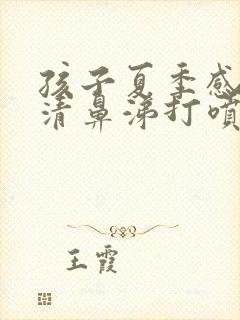 孩子夏季感
清鼻涕打喷
王霞